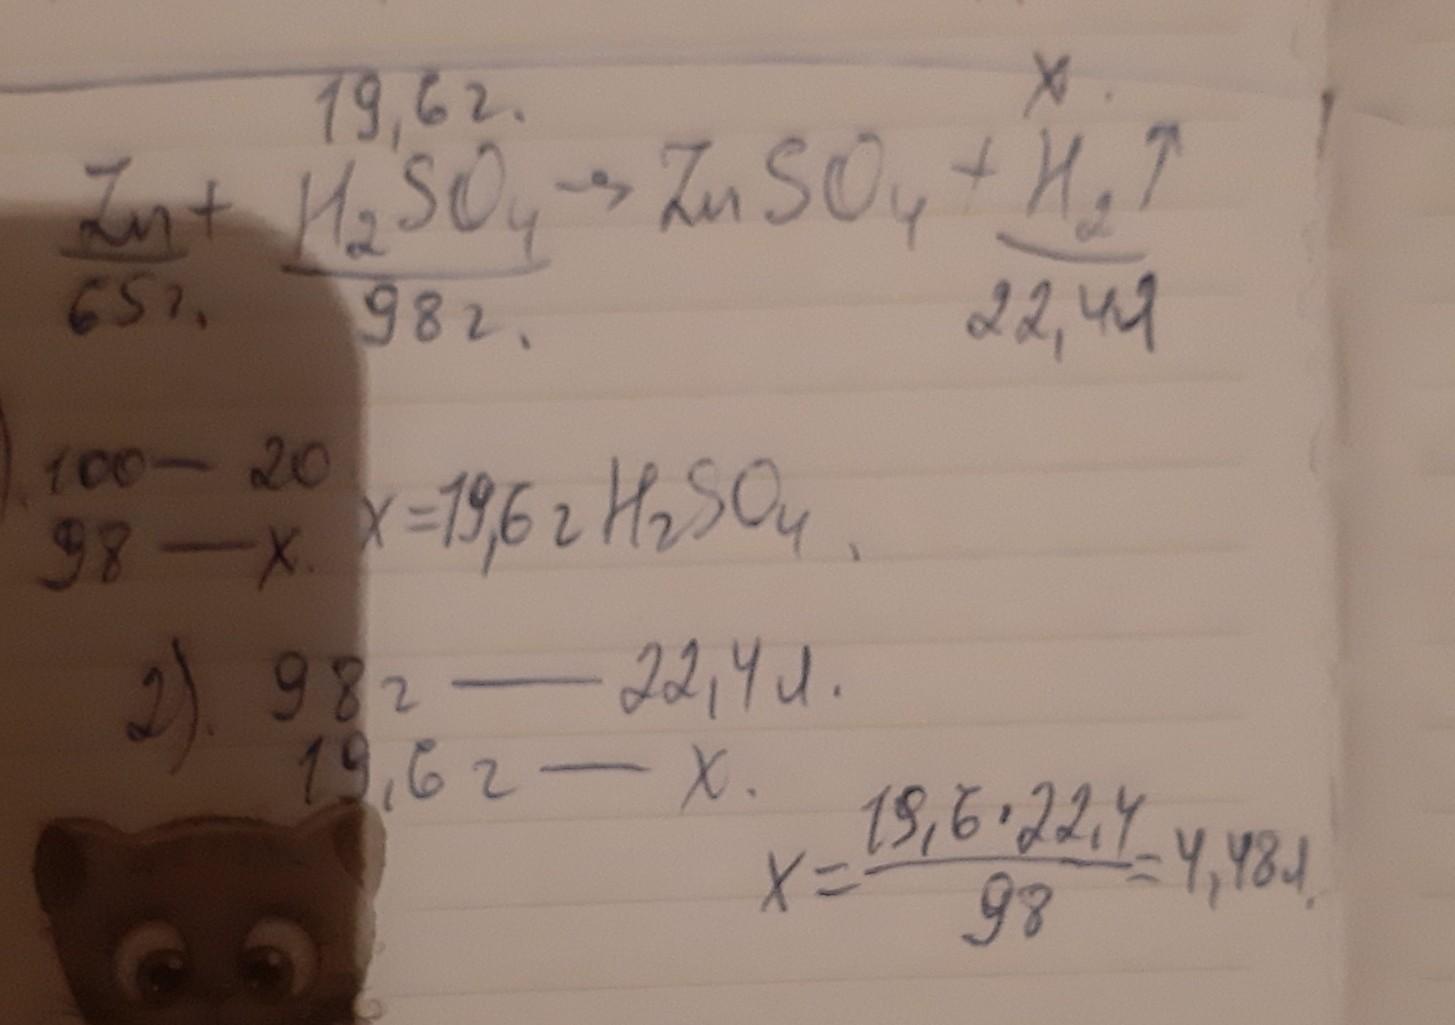 19,6 г. x.
Zn + H₂SO₄ → ZnSO₄ + H₂↑
65 г. 98 г. 22,4 л
). 100 — 20
98 — x. x = 19,6 г H₂SO₄.
2). 98 г — 22,4 л.
19,6 г — x.
x = 19,6 · 22,4 / 98 = 4,48 л.